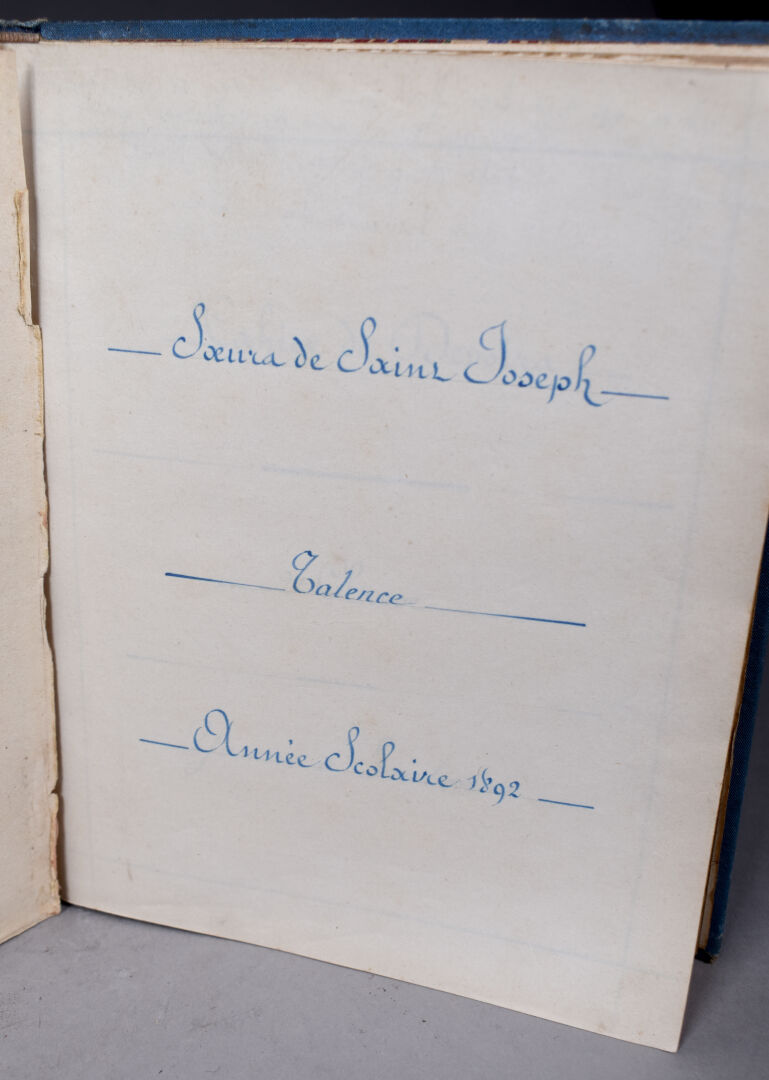 Sœurs de Saint Joseph
Talence
Année Scolaire 1892